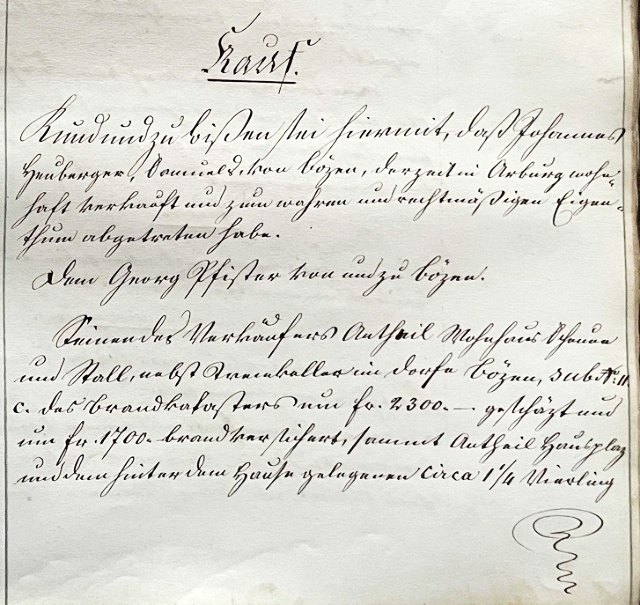 Kauf.
Kund und zu wißen sei hiermit, daß Johannes
Heuberger, Samuels, von Bözen, derzeit in Arburg wohn¬
haft verkauft und zum wahren und rechtmäßigen Eigen¬
thum abgetreten habe.
Dem Georg Pfister von und zu Bözen.
Seinen des Verkäufers Antheil Wohnhaus Scheune
und Stall, nebst im Dorfe Bözen, sub No. 11
c. des Brandkatasters um fr. 2300.— geschäzt und
um fr. 1700. brandversichert, sammt Antheil Hausplaz
und dem hinter dem Hause gelegenen circa 1 1/4 Vierling